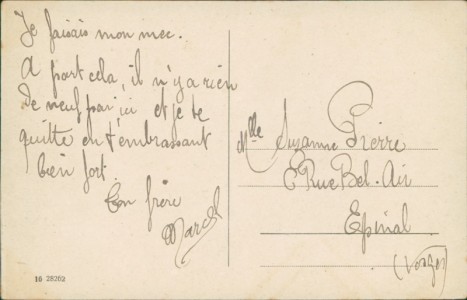 Je faisais mon mec.
A part cela, il n'y a rien
de neuf par ici et je te
quitte en t'embrassant
bien fort.
Ton frère
Marcel
Mlle Suzanne Pierre
6 Rue Bel-Air
Epinal
(Vosges)
10 28262